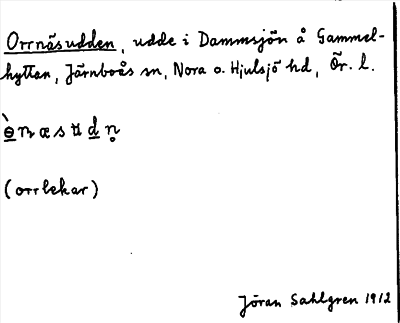 Orrnäsudden, udde i Dammsjön å Gammel-
hyttan, Järnboås sn, Nora o. Hjulsjö hd, Ör. l.
(orrlekar)
Jöran Sahlgren 1912